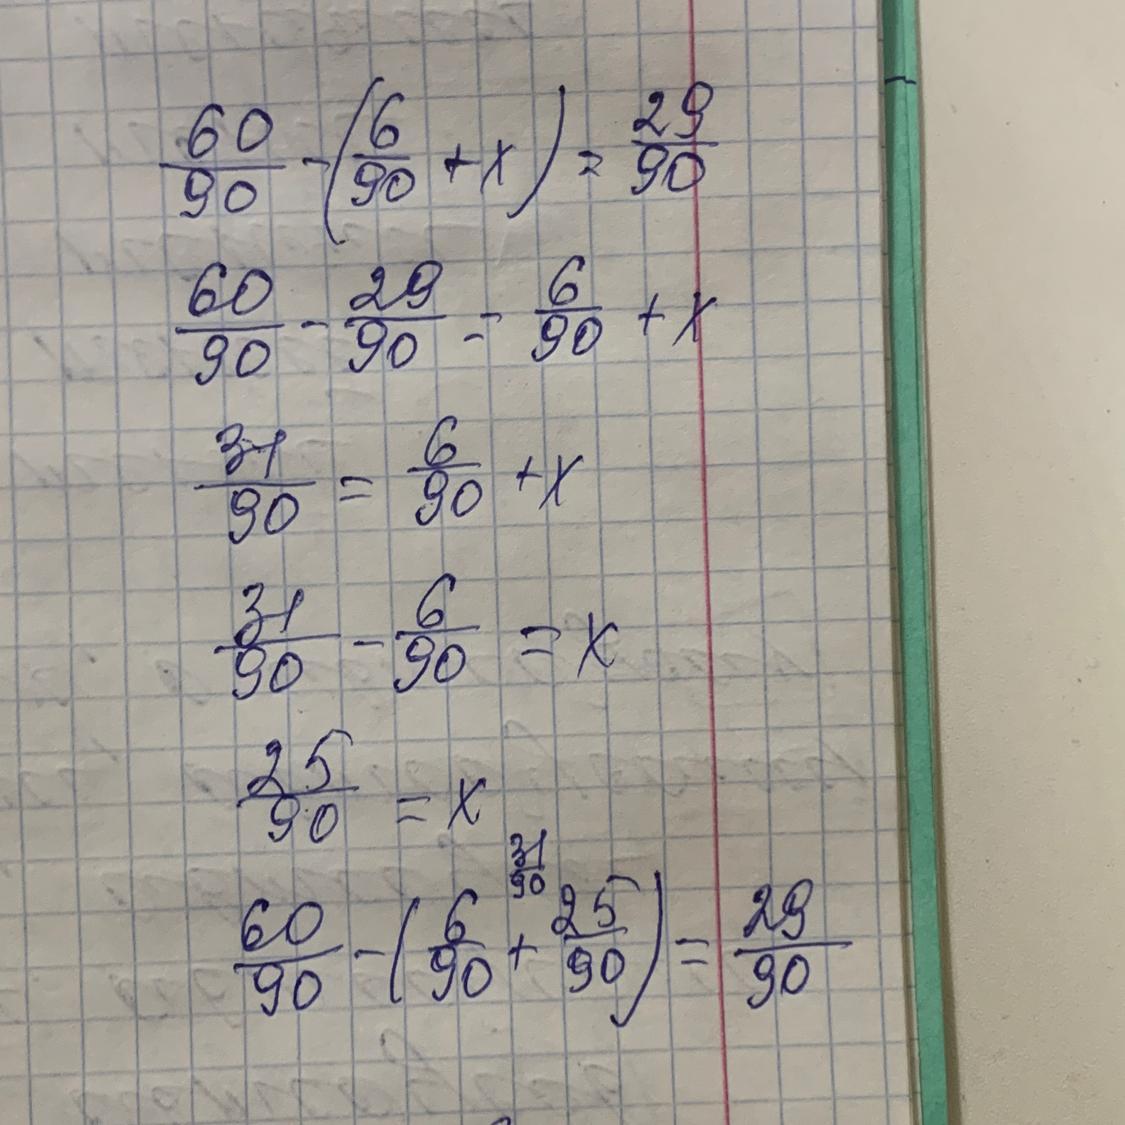 60/90 - (6/90 + x) = 29/90
60/90 - 29/90 = 6/90 + x
31/90 = 6/90 + x
31/90 - 6/90 = x
25/90 = x
31/90
60/90 - (6/90 + 25/90) = 29/90